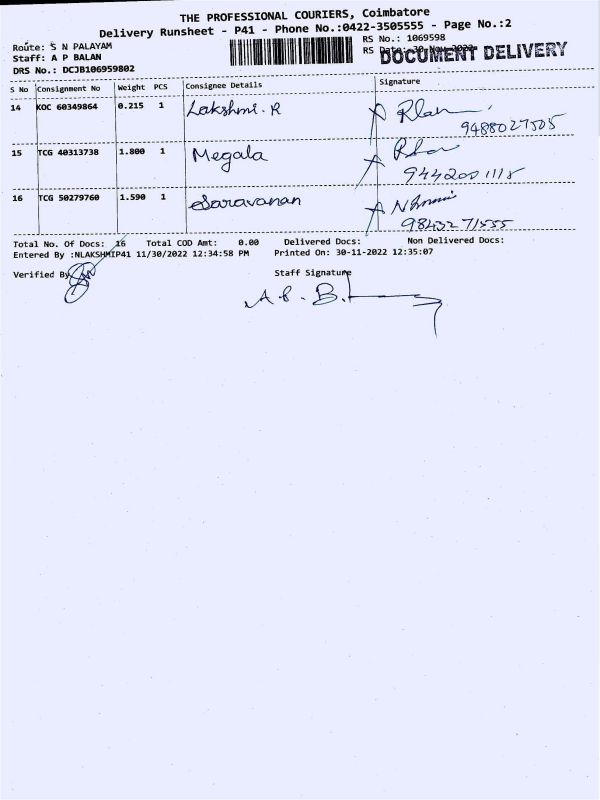 THE PROFESSIONAL COURIERS, Coimbatore
Delivery Runsheet - P41 - Phone No.:0422-3505555 - Page No.:2
Route: S N PALAYAM
RS No.: 1069598
Staff: A P BALAN
RS Date: 30-Nov-2022
DOCUMENT DELIVERY
DRS No.: DCJB106959802
S No Consignment No Weight PCS Consignee Details Signature
14 KOC 60349864 0.215 1 Lakshmi. R
9488027505
15 TCG 40313738 1.800 1 Megala
9442001118
16 TCG 50279760 1.590 1 Saravanan
9843271555
Total No. Of Docs: 16 Total COD Amt: 0.00 Delivered Docs: Non Delivered Docs:
Entered By :NLAKSHMIP41 11/30/2022 12:34:58 PM Printed On: 30-11-2022 12:35:07
Verified By
Staff Signature
A. P. B